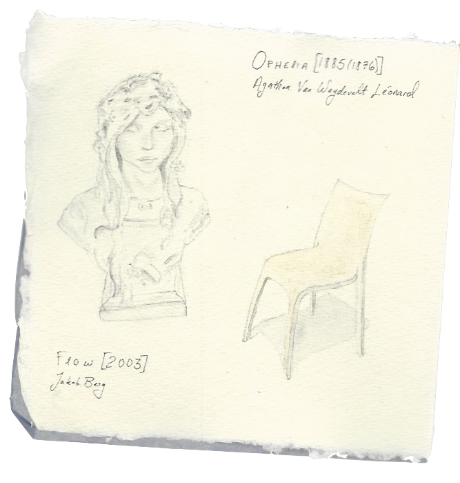 Ophelia [1885(1876)]
Agathon Van Weydeveldt Léonard
Flow [2003]
Jakob Berg